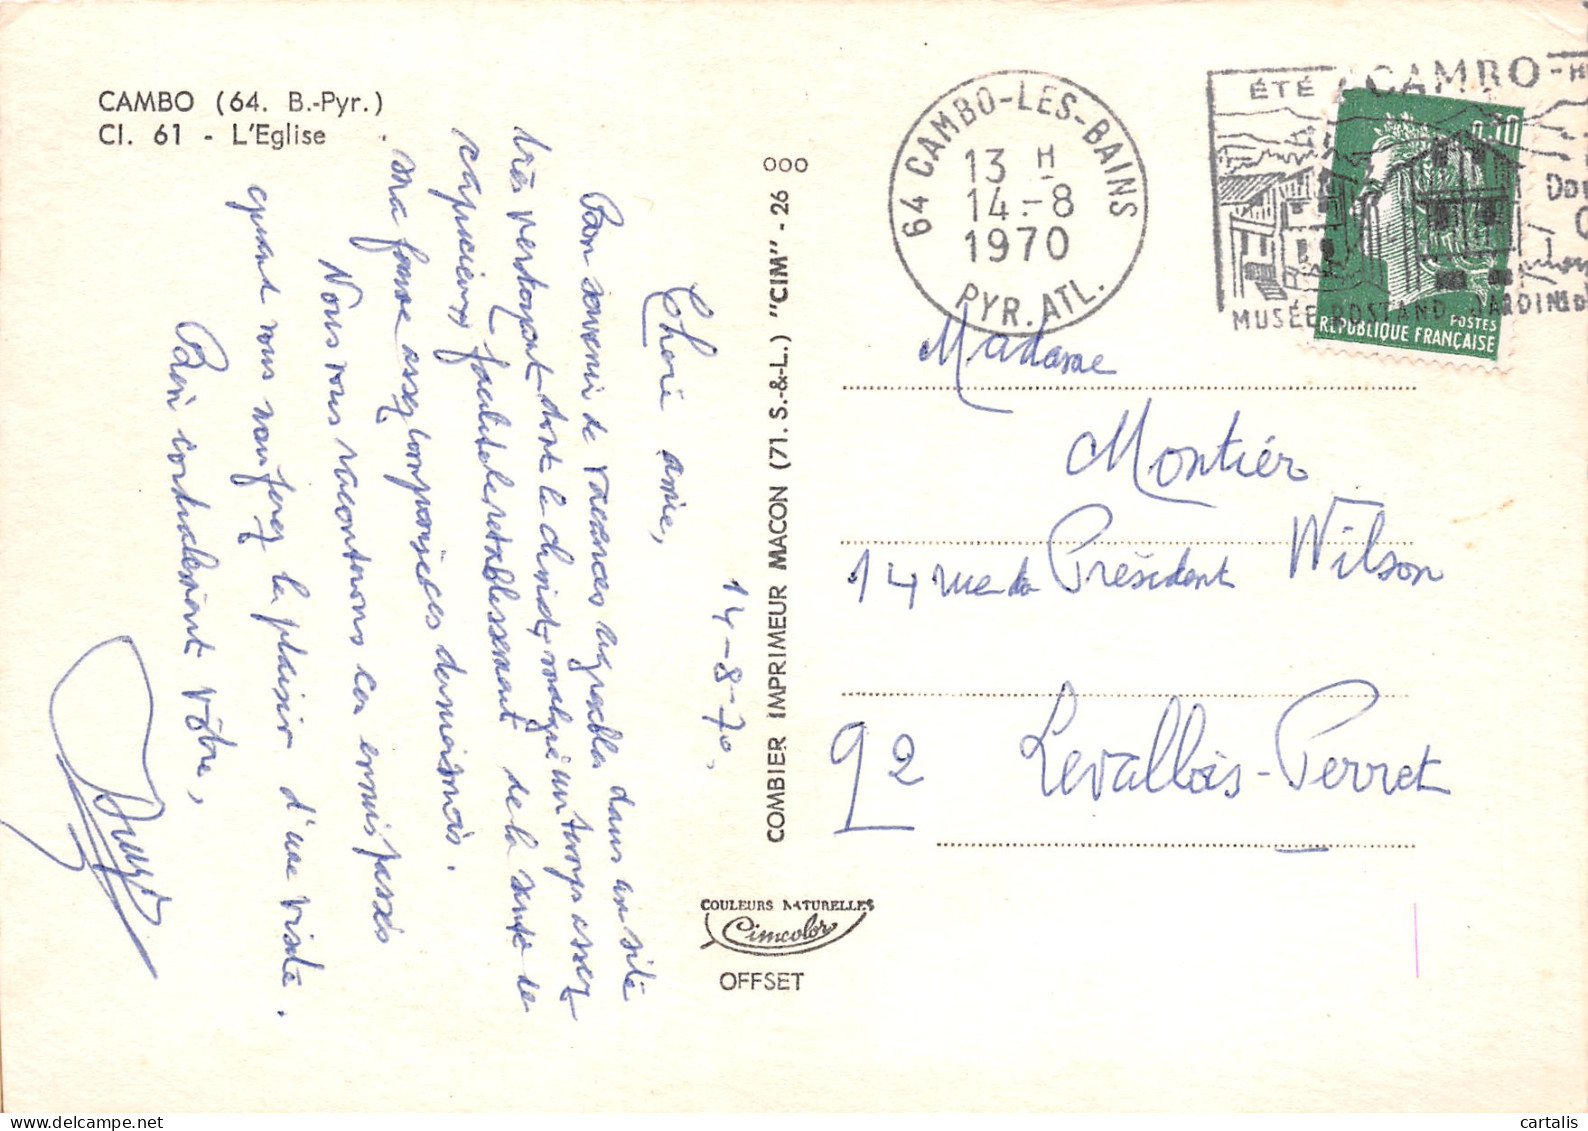 CAMBO (64. B.-Pyr.)
Cl. 61 - L'Eglise
14-8-70.
Chère amie,
Bon souvenir de vacances agréables dans un site
très verdoyant dont le climat, malgré un temps assez
capricieux, facilite le rétablissement de la santé de
ma femme assez compromise ces derniers mois.
Nous vous raconterons ces ennuis passés
quand vous nous ferez le plaisir d'une visite.
Bien cordialement vôtre,
COMBIER IMPRIMEUR MACON (71. S.-&-L.) "CIM" - 26
000
COULEURS NATURELLES
Cimcolor
OFFSET
64 CAMBO-LES-BAINS
13 H
14-8
1970
PYR. ATL.
ÉTÉ CAMBO - H
DO
MUSÉE ROSTAND JARDIN
0,30
POSTES
REPUBLIQUE FRANÇAISE
Madame
Montiér
14 rue du Président Wilson
92 Levallois-Perret